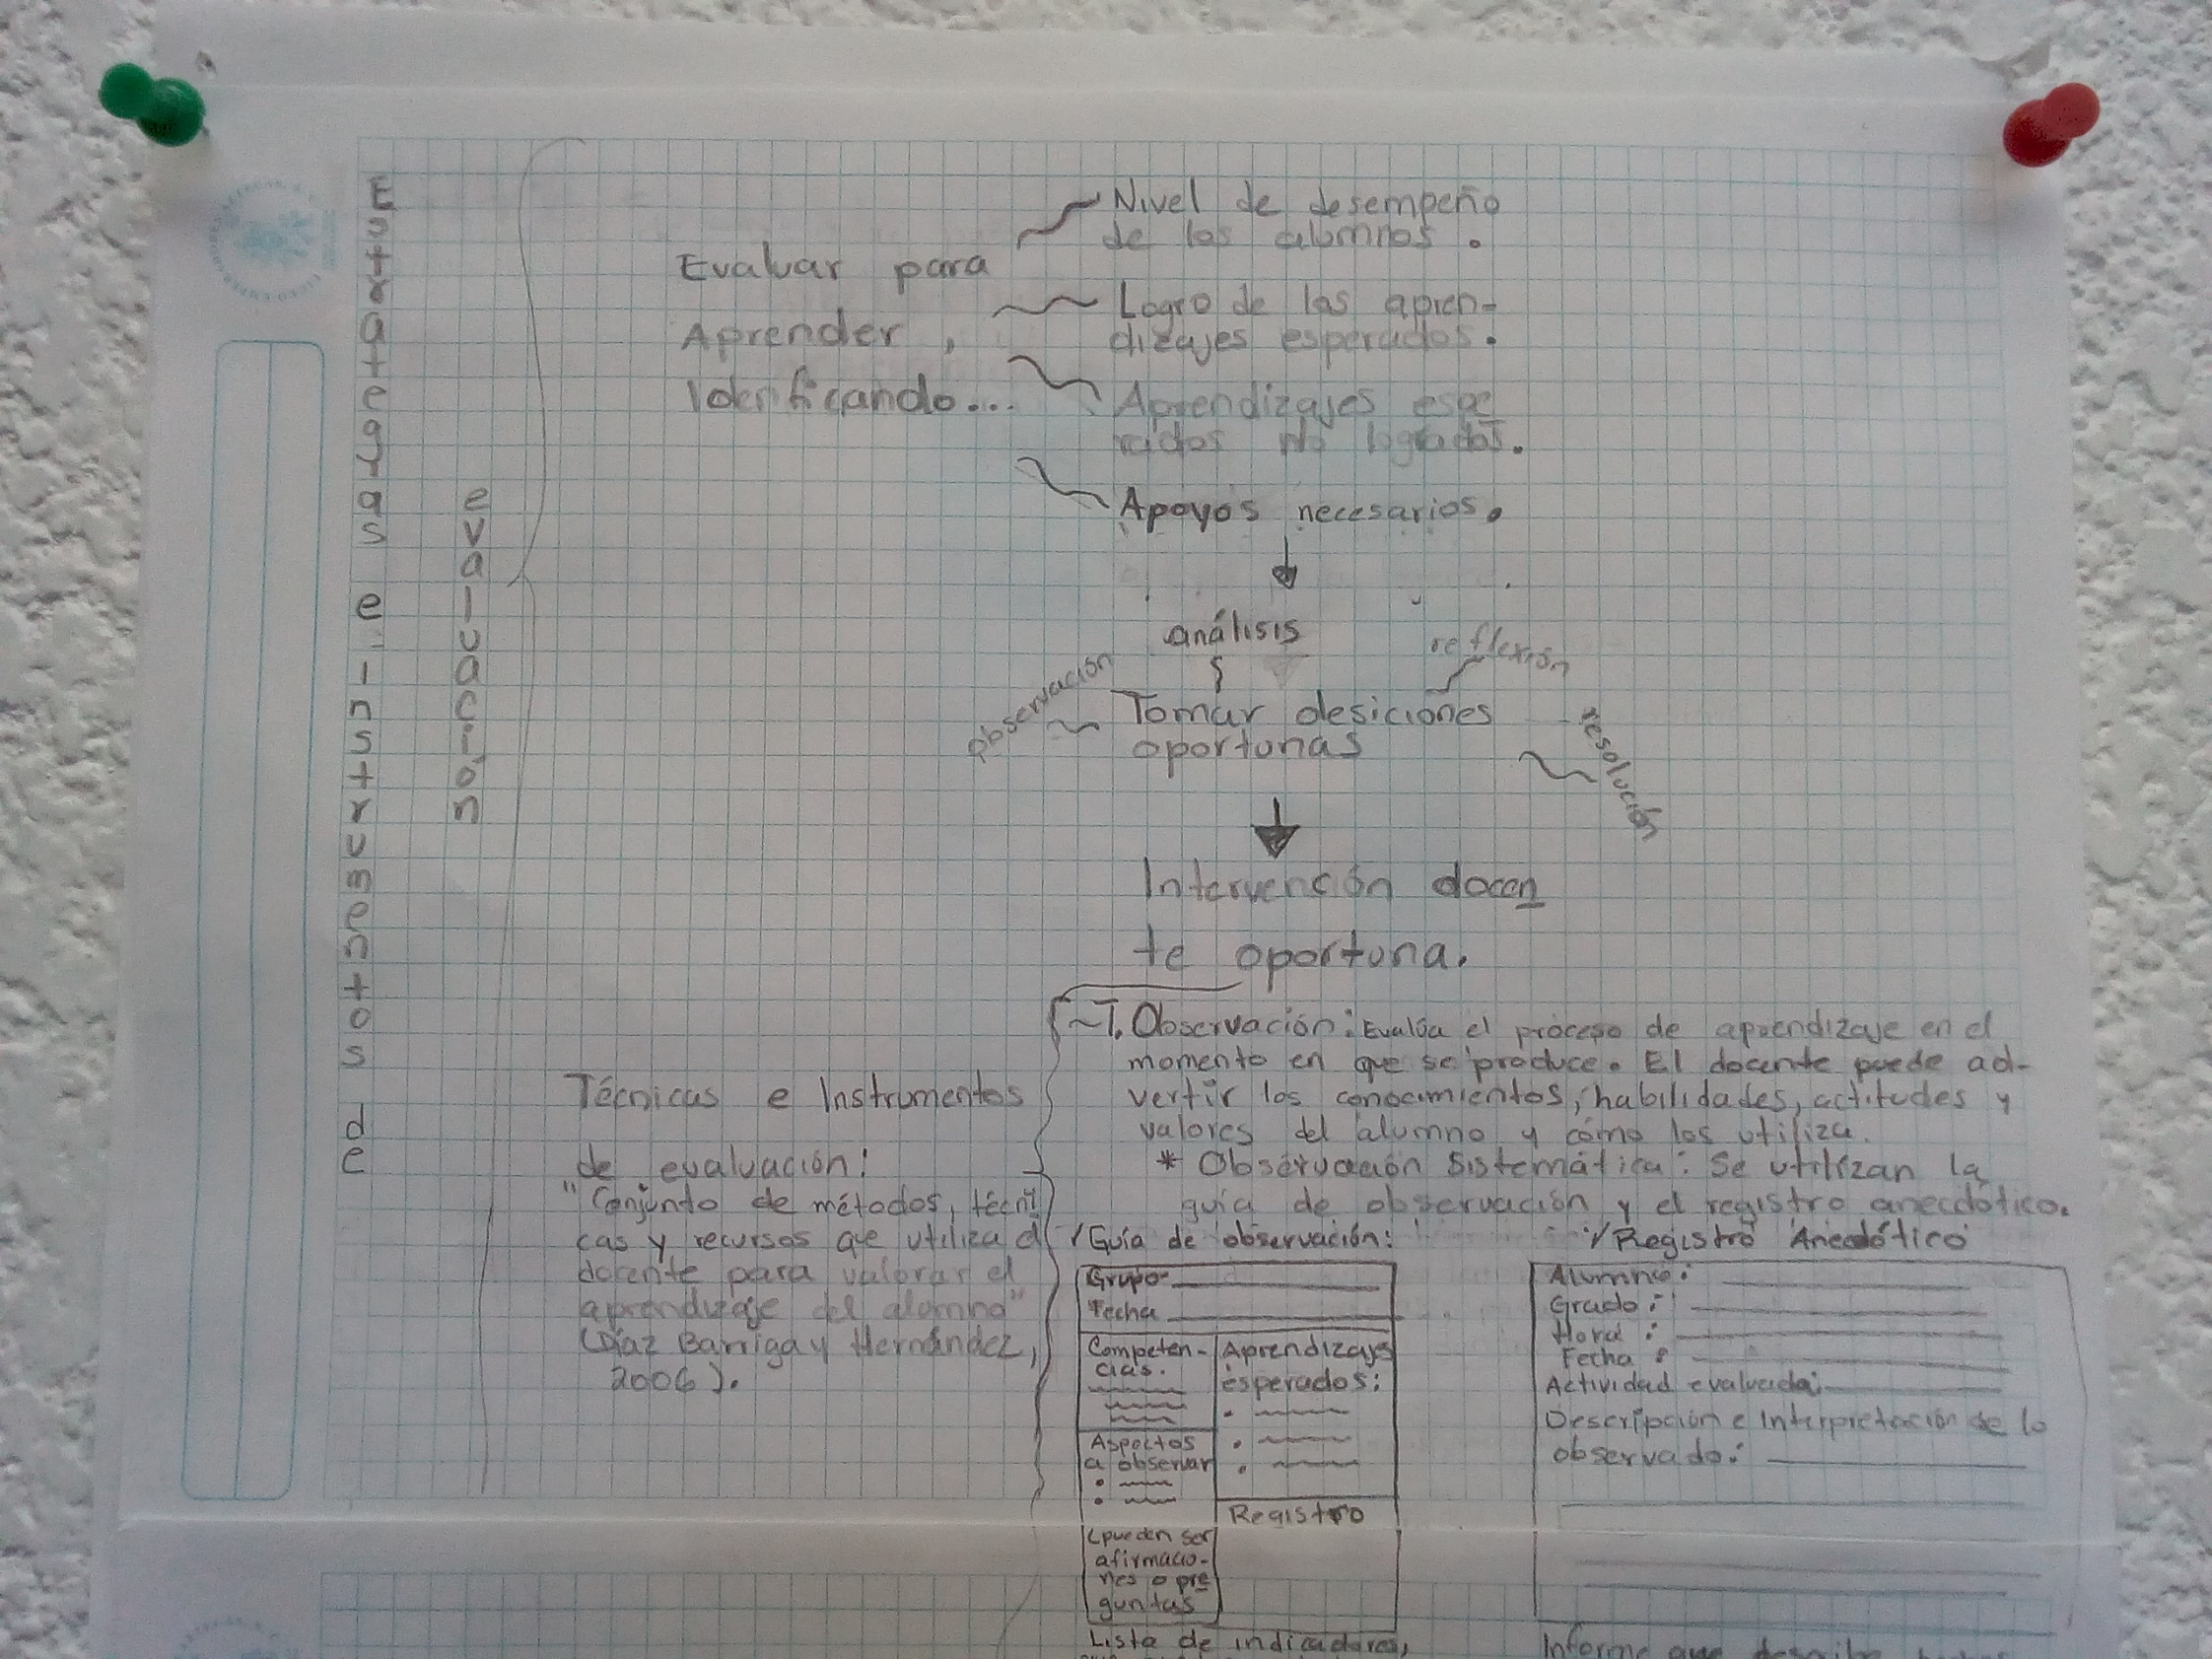 Estrategias e instrumentos de
evaluación
Evaluar para
Aprender,
Identificando...
Nivel de desempeño
de los alumnos.
Logro de los apren-
dizajes esperados.
Aprendizajes espe
rados no logrados.
Apoyos necesarios.
análisis
reflexión
observación
Tomar desiciones
oportunas
resolución
Intervención docen
te oportuna.
Técnicas e Instrumentos
de evaluación:
"Conjunto de métodos, técni
cas y recursos que utiliza el
docente para valorar el
aprendizaje del alumno"
(Díaz Barriga y Hernández,
2006).
~T. Observación: Evalúa el proceso de aprendizaje en el
momento en que se produce. El docente puede ad-
vertir los conocimientos, habilidades, actitudes y
valores del alumno y cómo los utiliza.
* Observación Sistemática: Se utilizan la
guía de observación y el registro anecdótico.
✓Guía de observación:
Grupo
Fecha
Competen-
cias.
Aprendizajes
esperados:
Aspectos
a observar
(pueden ser
afirmacio-
nes o pre
guntas
Registro
Lista de indicadores,
✓Registro Anecdótico
Alumno:
Grado:
Hora:
Fecha:
Actividad evaluada:
Descripción e Interpretación de lo
observado:
Informe que describe